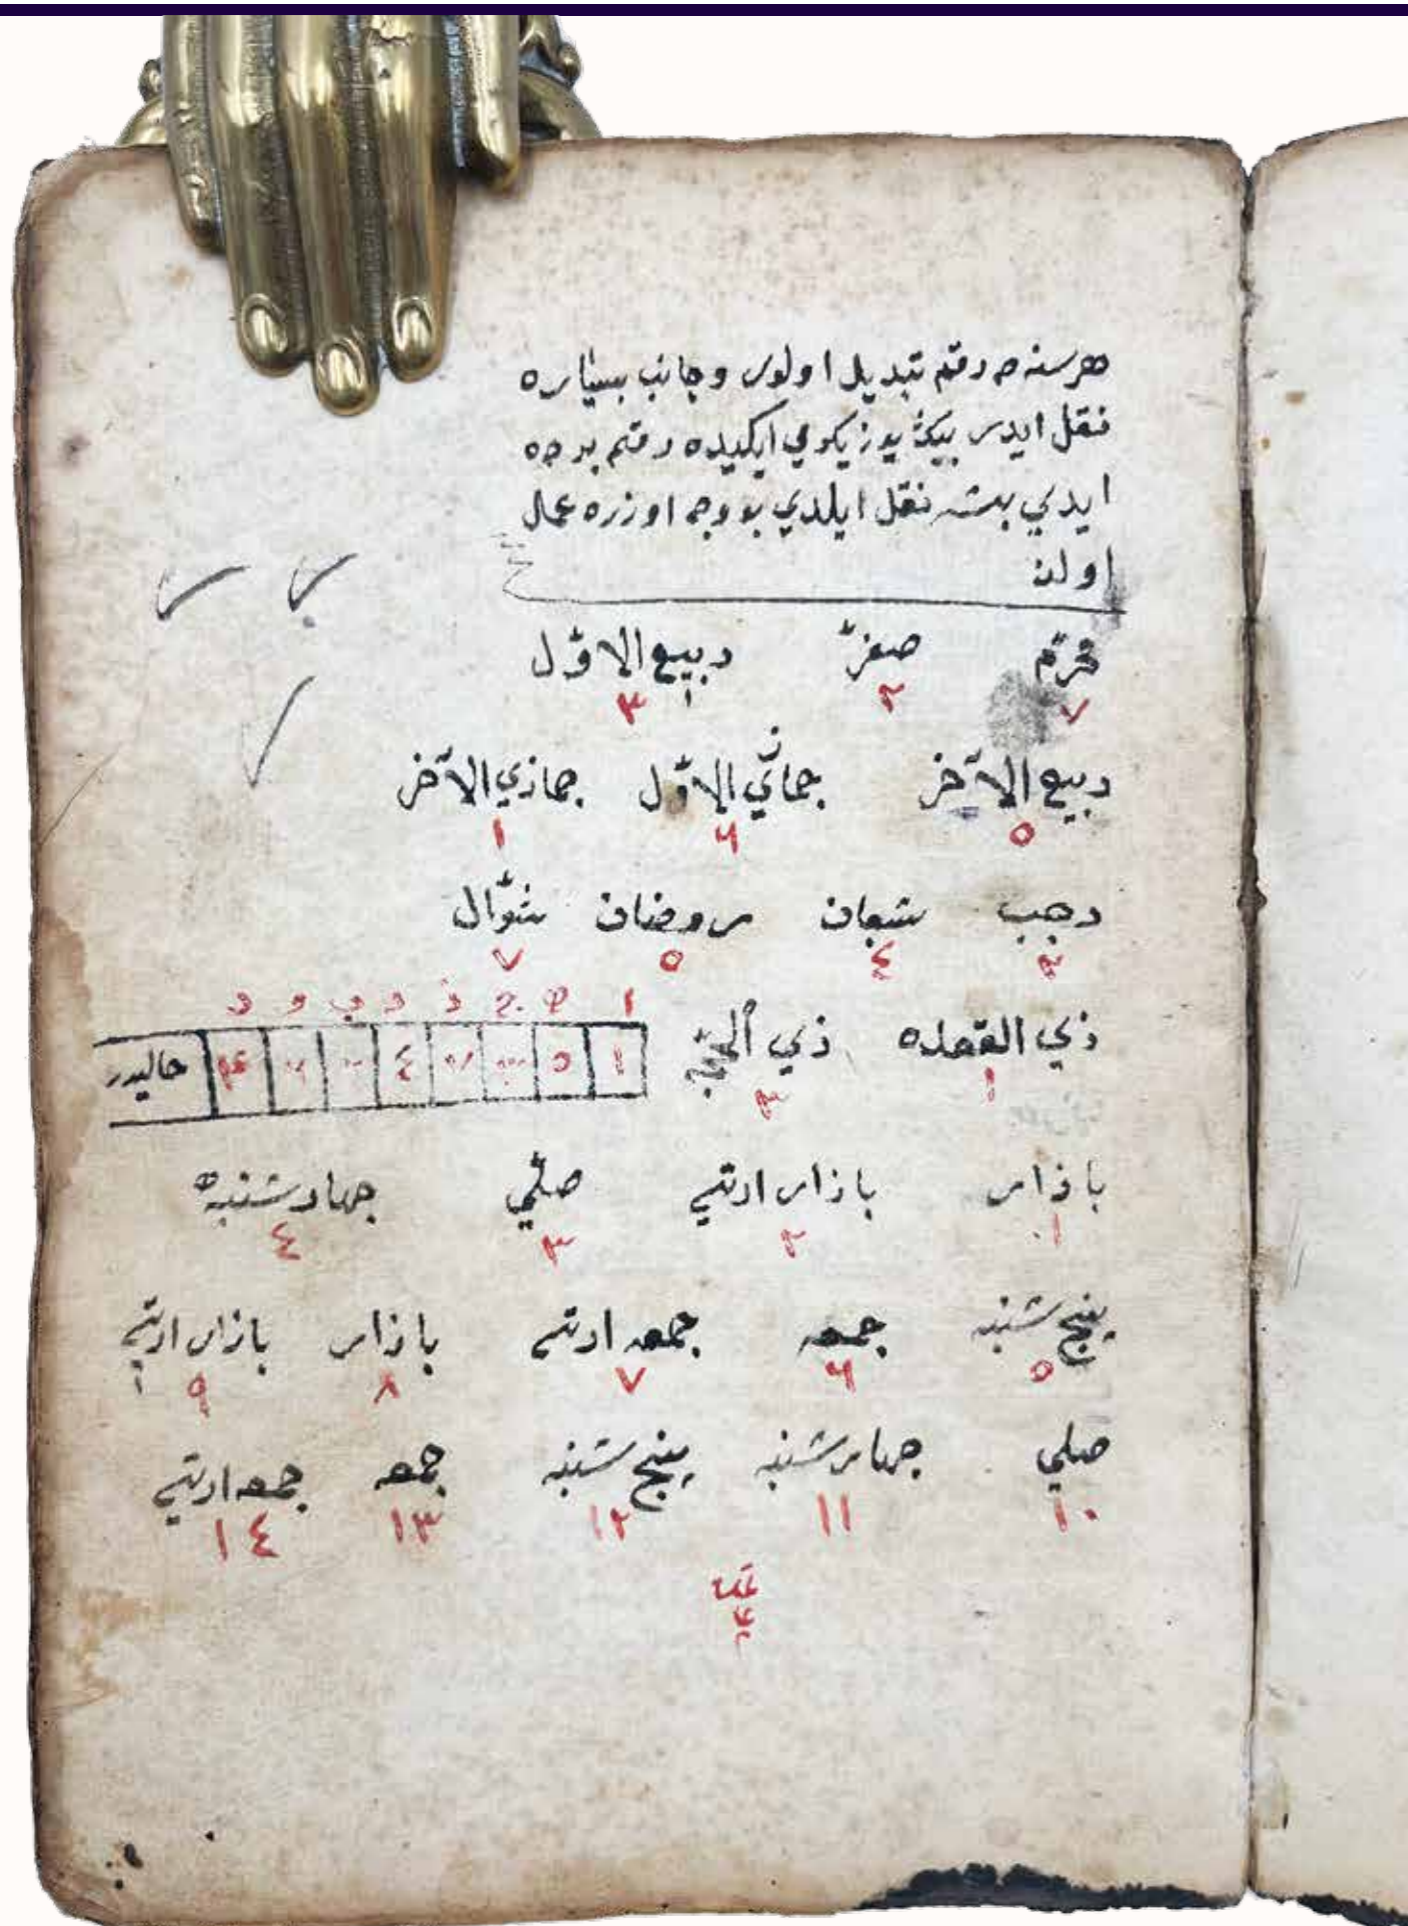 هر سنه ده رقم تبديل اولور وجانب يساره
نقل ايدر بيك يوز يكرمي ايكيده رقم برده
ايدي بشه نقل ايلدي بو وجه اوزره عمال
اولن
محرّم صفر ربيع الاوّل
٧ ٢ ٣
ربيع الآخر جماذي الاوّل جماذي الآخر
٥ ٦ ١
رجب شعبان رمضان شوّال
٢ ٤ ٥ ٧
ذي القعده ذي الحجه
١ ٣
١ ٥ ٤ حاليدر
بازار بازار ارتسي صلّي جهارشنبه
١ ٢ ٣ ٤
پنجشنبه جمعه جمعه ارتسي بازار بازار ارتسي
٥ ٦ ٧ ٨ ٩
صلي جهارشنبه پنجشنبه جمعه جمعه ارتسي
١٠ ١١ ١٢ ١٣ ١٤